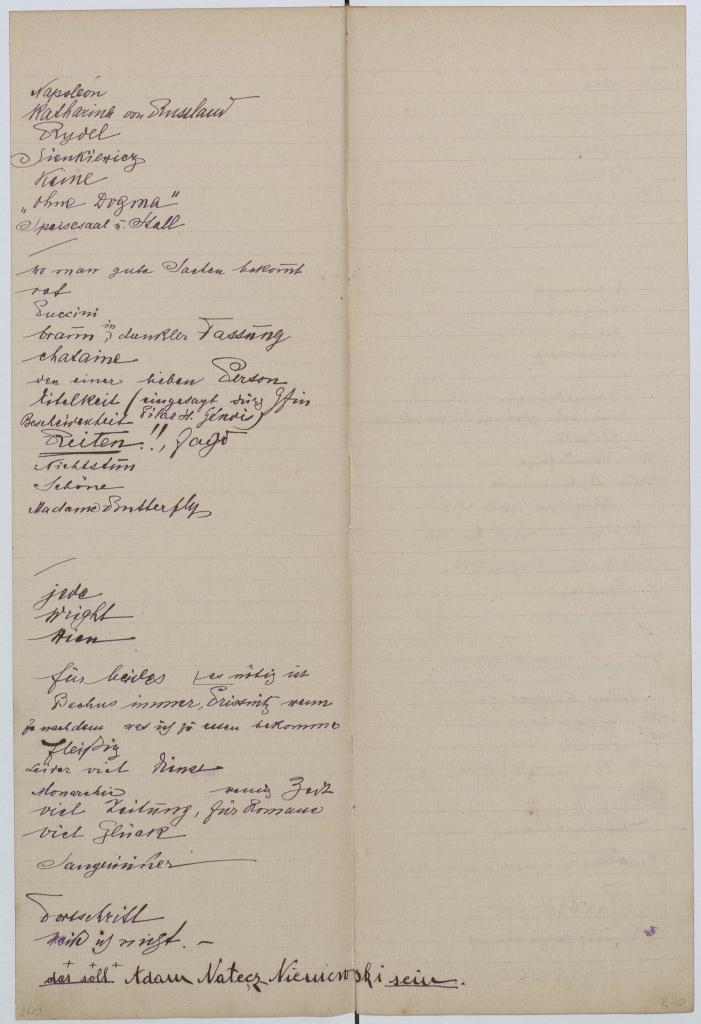 Napoleon
Katharina von Russland
Rydel
Sienkiewicz
Keine
„ohne Dogma"
Speisesaal u. Stall
wo man gute Sachen bekommt
rot
Puccini
braun in dunkler Fassung
chataine
von einer lieben Person
Eitelkeit (eingesagt durch Gfin
Bescheidenheit
Reiten!!, Jagd
Nichtstun
Schöne
Madame Butterfly
jede
Wright
Wien
für beides es nötig ist
immer, wenn
je nachdem was ich zu essen bekomme
fleißig
Leider viel Dienst
Monarchie wenig Zeit
viel Zeitung, für Romane
viel Glück
Sanguiniker
Fortschritt
weiß ich nicht. —
das soll Adam Nałęcz Niemirowski sein.
209
210